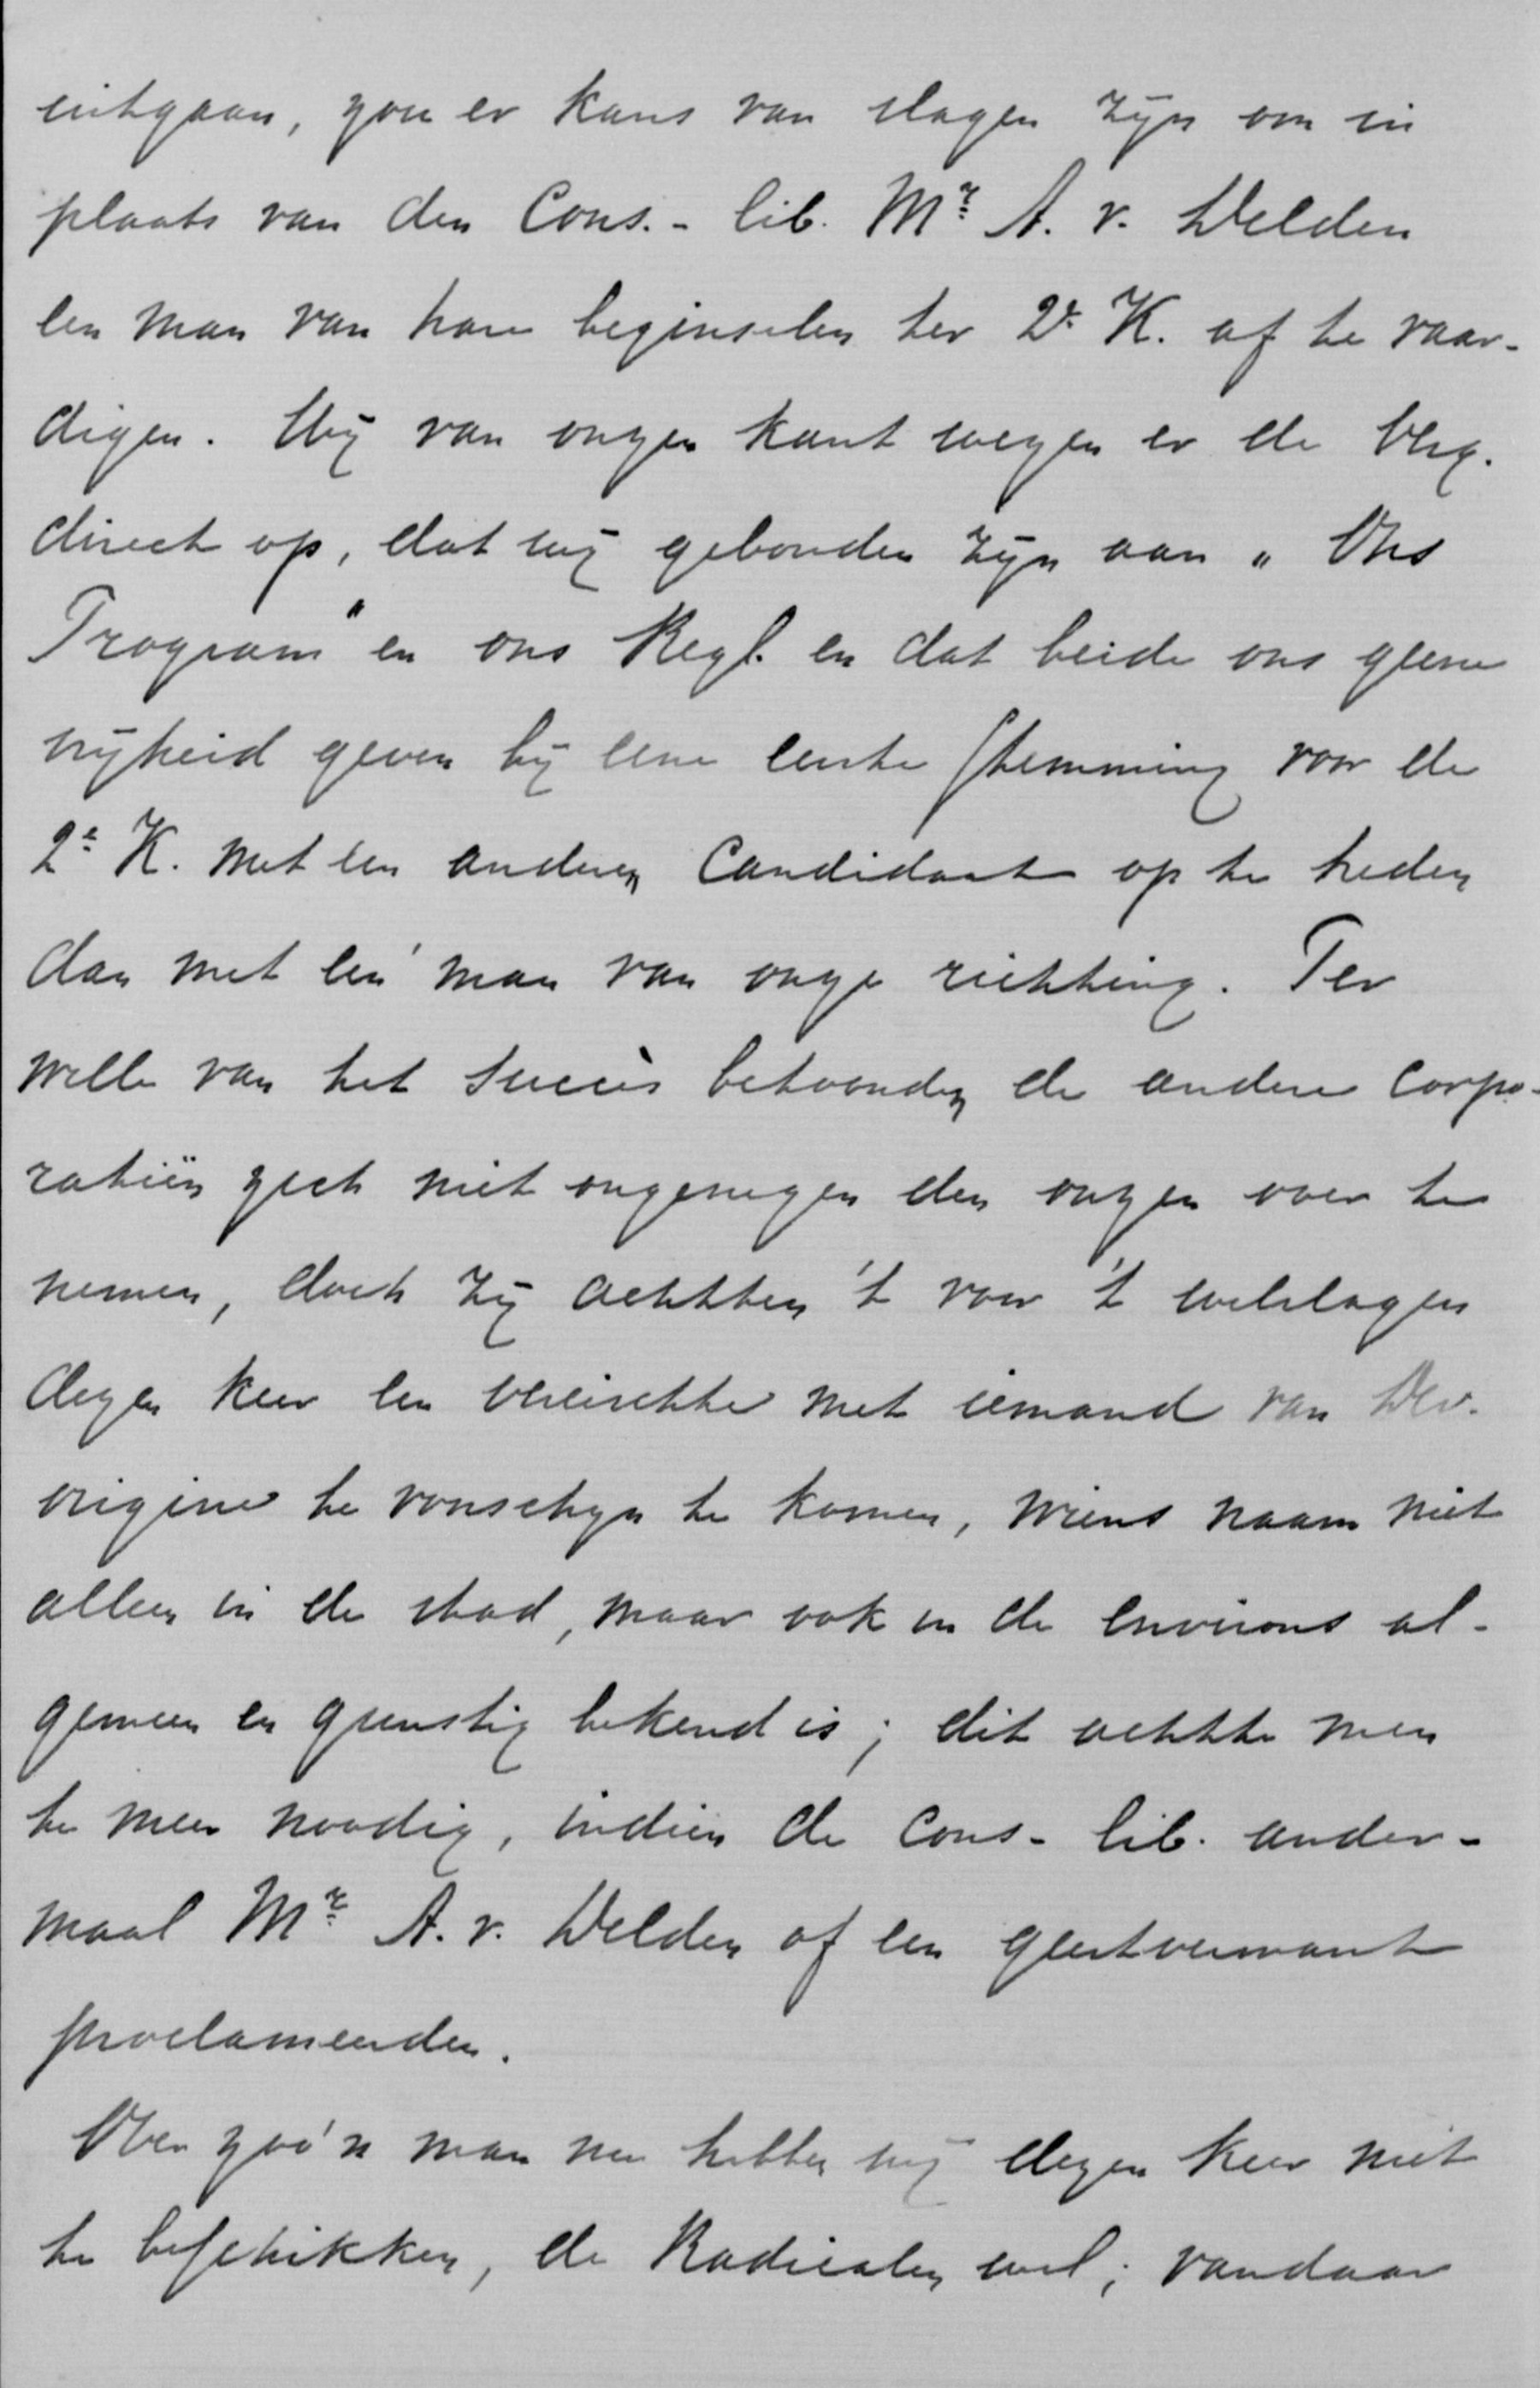 uitgaan, zou er kans van slagen zijn om in
plaats van den Cons.- lib. Mr. A. v. Delden
een man van hare beginselen ter 2e K. af te vaar-
digen. Wij van onzen kant wezen er de Verg.
direct op, dat wij gebonden zijn aan „Ons
Program" en ons Regl. en dat beide ons geene
vrijheid geven bij eene eerste stemming voor de
2e K. met een anderen Candidaat op te treden
dan met een man van onze richting. Ter
wille van het succès betoonden de andere corpo-
ratiën zich niet ongenegen den onzen over te
nemen, doch zij achtten 't voor 't welslagen
dezen keer een vereischte met iemand van Dev.
origine te voorschijn te komen, wiens naam niet
alleen in de stad, maar ook in de environs al-
gemeen en gunstig bekend is; dit achtte men
te meer noodig, indien de Cons- lib. ander-
maal Mr. A. v. Delden of een geestverwant
proclameerden.
Over zoo'n man nu hebben wij dezen keer niet
te beschikken, de Radicalen wel; vandaar